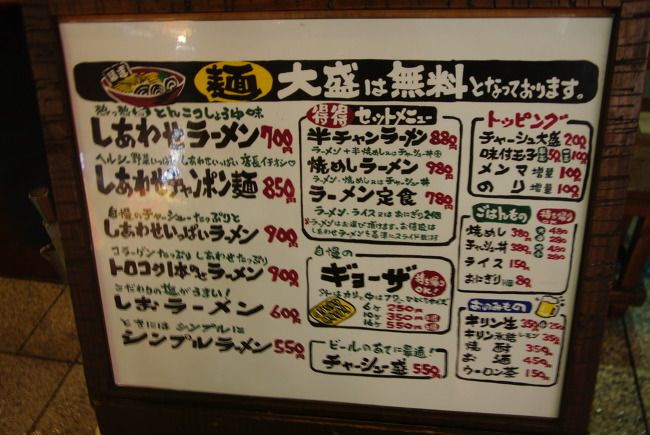 麺 大盛は無料となっております。
とんこつしょうゆ味
しあわせラーメン 700円
しあわせチャンポン麺 850円
自慢のチャーシューたっぷりと
しあわせいっぱいラーメン 900円
コラーゲンたっぷり しあわせたっぷり
トロコツ1本のせラーメン 900円
こだわりの塩がうまい!
しおラーメン 600円
ときには シンプルに
シンプルラーメン 550円
得得 セットメニュー
半チャンラーメン 880円
焼めしラーメン 980円
ラーメン定食 780円
ラーメン・ライス又はおにぎり2個
自慢の
ギョーザ 持ち帰りOK!
6ヶ 250円
10ヶ 350円
16ヶ 550円
ビールのあてに最適!
チャーシュー盛 550円
トッピング
チャーシュー大盛 200円
味付玉子 50円 100円
メンマ 増量 100円
のり 増量 100円
ごはんもの 持ち帰りOK!
焼めし 380円 480円
チャーシュー丼 380円 480円
ライス 150円
おにぎり 80円
おのみもの
キリン生 350円 250円
キリン氷結 レモン 350円
焼酎 350円
お酒 450円
ウーロン茶 150円